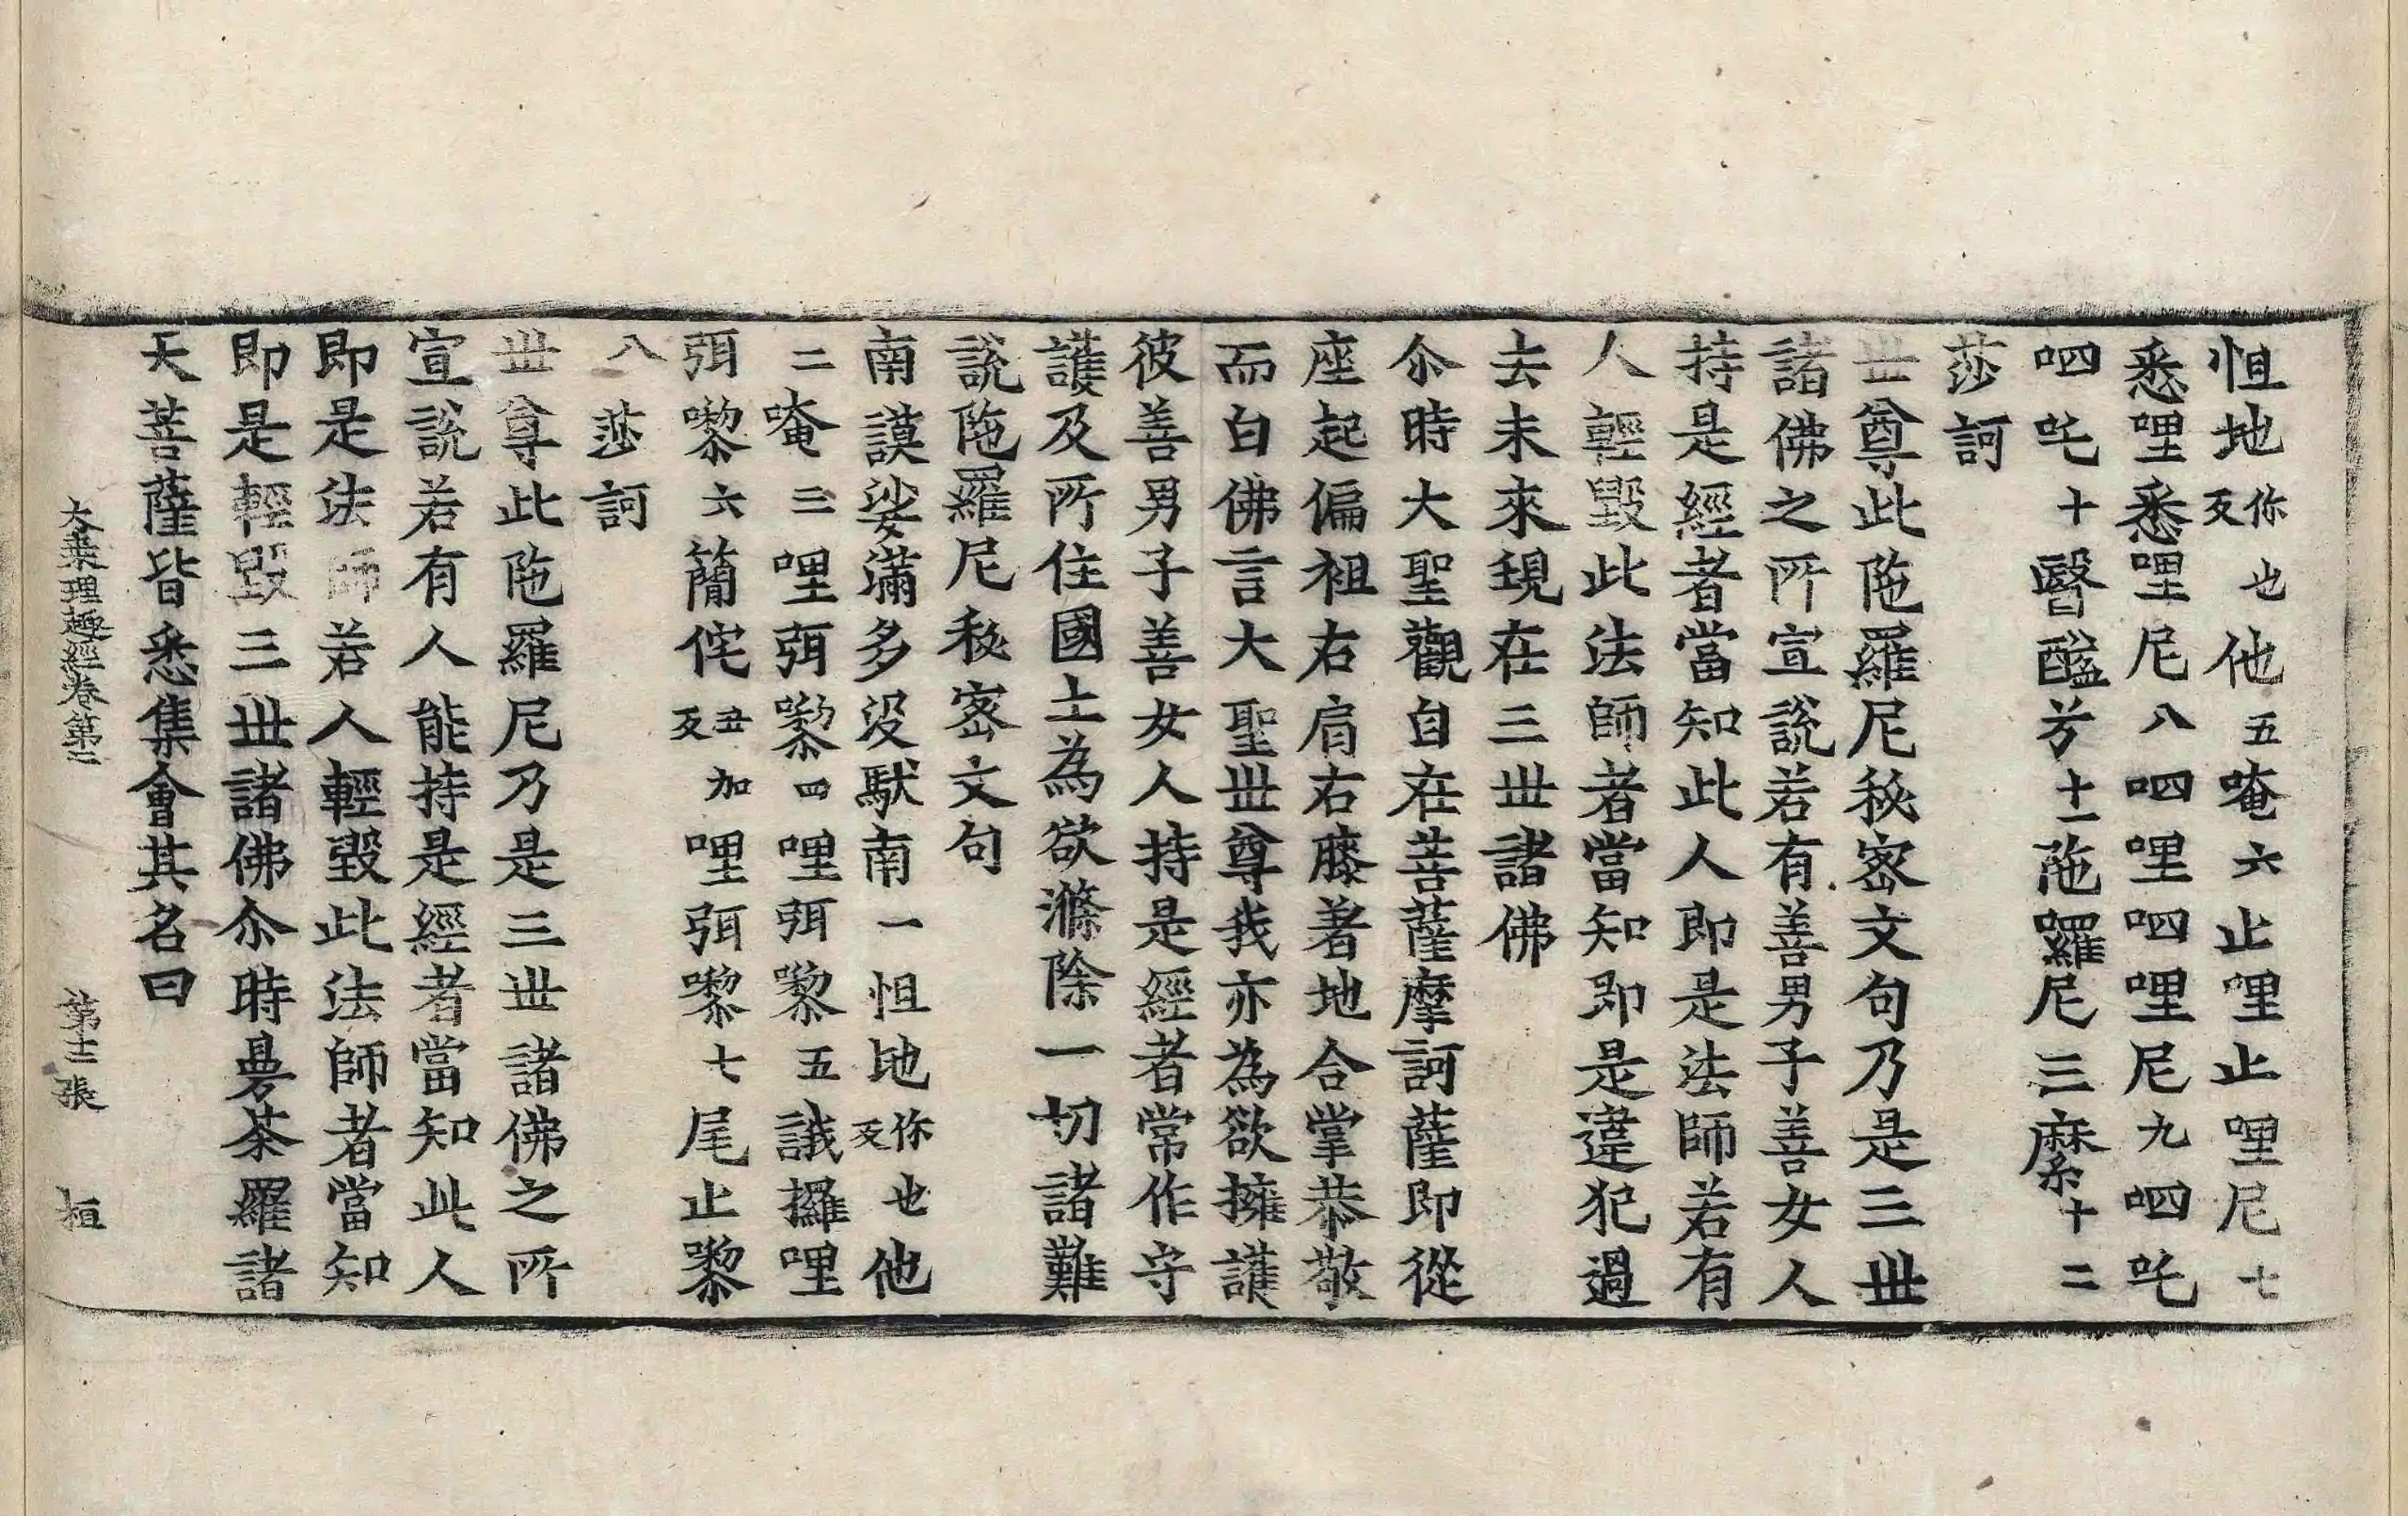 怛地你也反他五唵六止哩止哩尼七
悉哩悉哩尼八呬哩呬哩尼九呬吒
呬吒十醫醯兮十一陁囉尼三縻十二
莎訶
丗尊此陁羅尼秘宻文句乃是三丗
諸佛之所宣說若有善男子善女人
持是經者當知此人即是法師若有
人輕毀此法師者當知即是違犯過
去未來現在三丗諸佛
尒時大聖觀自在菩薩摩訶薩即從
座起偏袒右肩右膝著地合掌恭敬
而白佛言大聖丗尊我亦為欲擁護
彼善男子善女人持是經者常作守
護及所住國土為欲滌除一切諸難
說陁羅尼秘宻文句
南謨娑滿多没馱南一怛地你也反他
二唵三哩弭嚟四哩弭嚟五誐攞哩
弭嚟六蕳侘丑加反哩弭嚟七尾止嚟
八莎訶
丗尊此陁羅尼乃是三丗諸佛之所
宣說若有人能持是經者當知此人
即是法師若人輕毀此法師者當知
即是輕毀三丗諸佛尒時曼荼羅諸
天菩薩皆悉集會其名曰
大乘理趣經卷第二 第十二張 桓